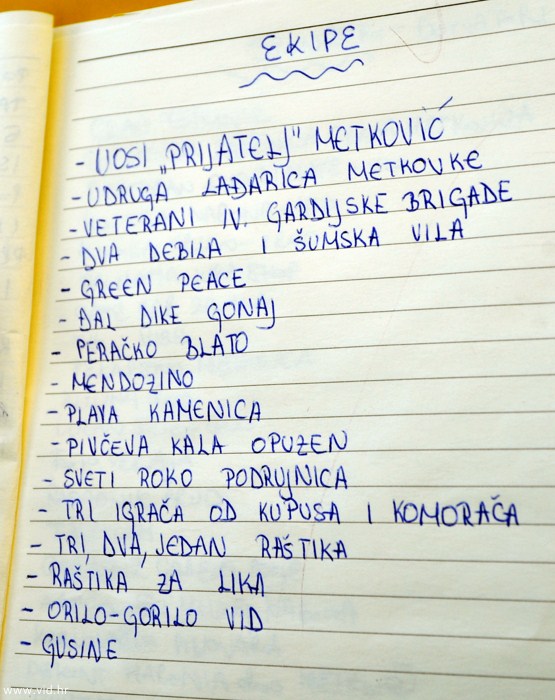 EKIPE
- UOSI „PRIJATELJ" METKOVIĆ
- UDRUGA LAĐARICA METKOVKE
- VETERANI IV. GARDIJSKE BRIGADE
- DVA DEBILA I ŠUMSKA VILA
- GREEN PEACE
- ĐAL DIKE GONAJ
- PERAČKO BLATO
- MENDOZINO
- PLAVA KAMENICA
- PIVČEVA KALA OPUZEN
- SVETI ROKO PODRUJNICA
- TRI IGRAČA OD KUPUSA I KOMORAČA
- TRI, DVA, JEDAN RAŠTIKA
- RAŠTIKA ZA LIKA
- ORILO-GORILO VID
- GUSINE
www.vid.hr